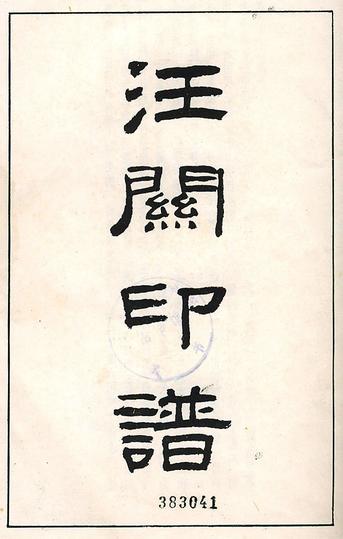 汪關印譜
383041